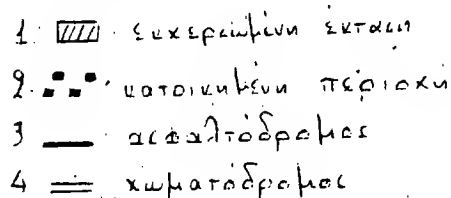 1. ἐκχερσωμένη ἔκταση
2. κατοικημένη περιοχή
3 ασφαλτόδρομος
4 χωματόδρομος